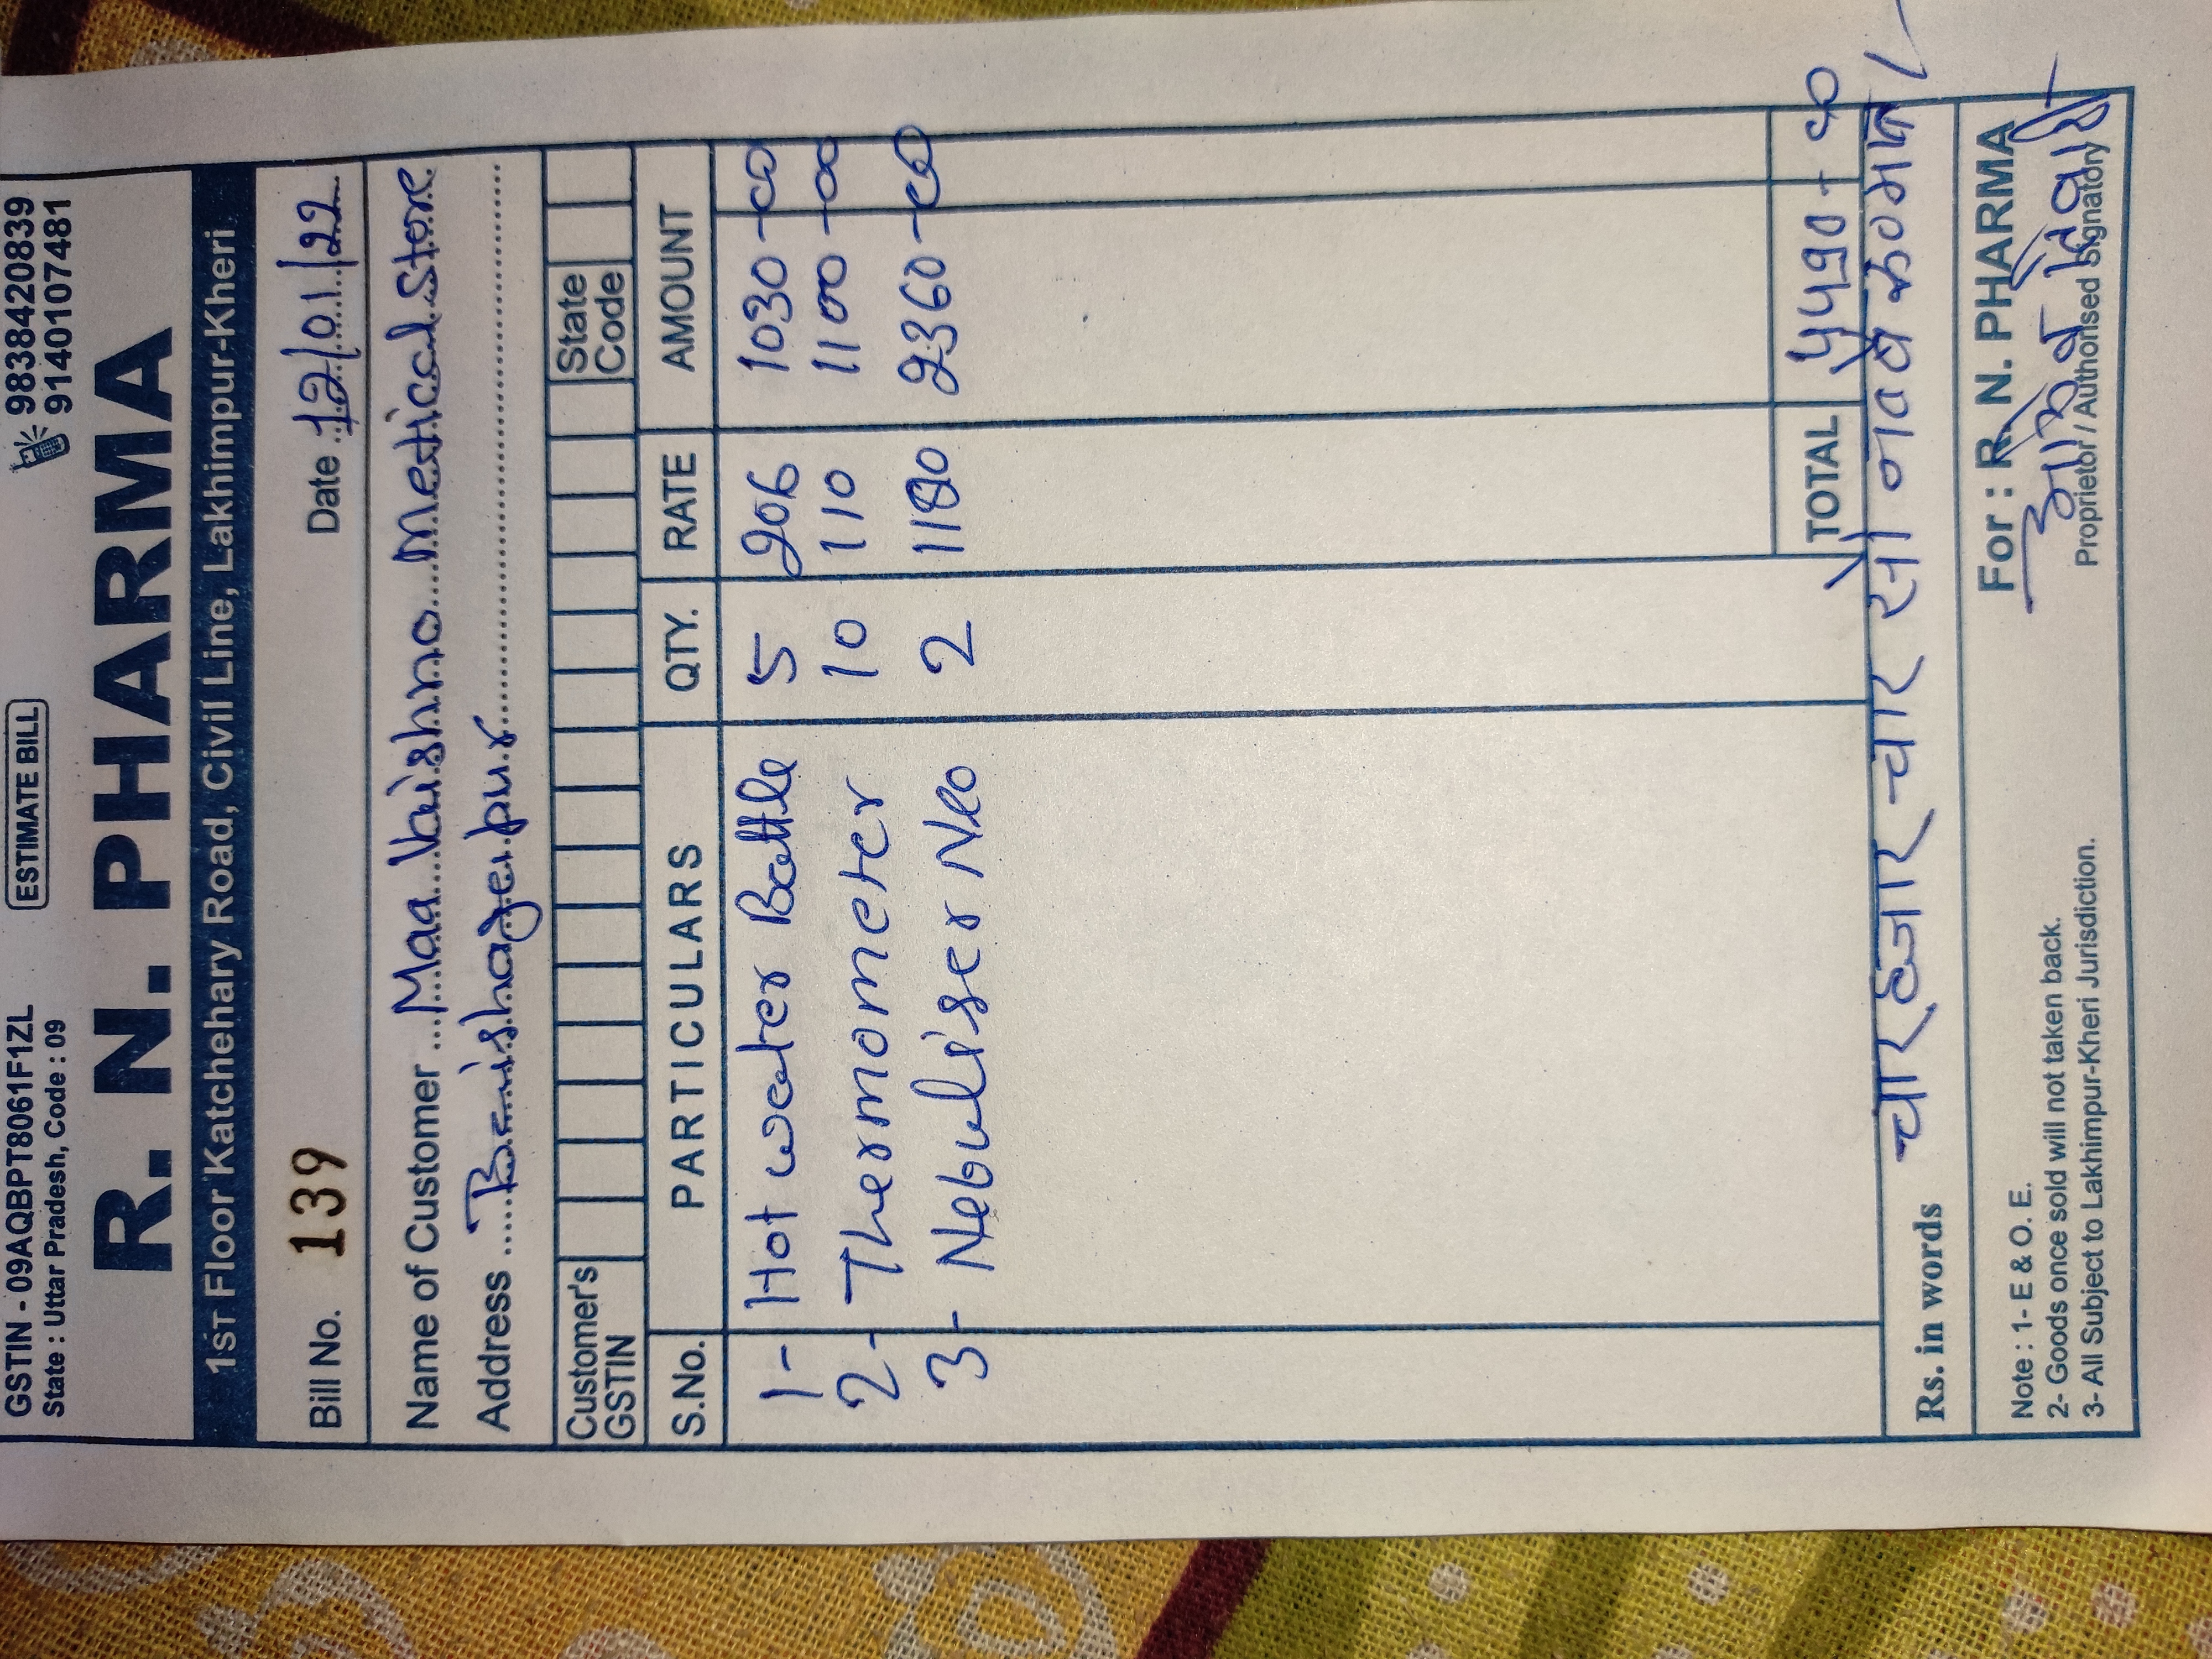 GSTIN - 09AQBPT8061F1ZL ESTIMATE BILL 9838420839
State : Uttar Pradesh, Code : 09 9140107481
R. N. PHARMA
1ST Floor Katchehary Road, Civil Line, Lakhimpur-Kheri
Bill No. 139 Date 12/01/22
Name of Customer Maa Vaishno Medical Store
Address
Customer's GSTIN State Code
S.No. PARTICULARS QTY. RATE AMOUNT
1- Hot water Bottle 5 206 1030-00
2- Thermometer 10 110 1100-00
3- Nebuliser Neo 2 1180 2360-00
TOTAL 4490-00
Rs. in words चार हजार चार सौ नब्बे रू० मात्र
For : R. N. PHARMA
Note : 1- E & O. E.
2- Goods once sold will not taken back.
3- All Subject to Lakhimpur-Kheri Jurisdiction.
Proprietor / Authorised Signatory